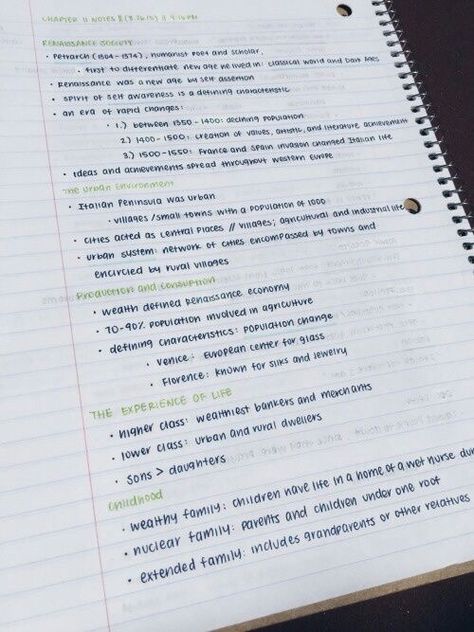 CHAPTER 11 NOTES
RENAISSANCE SOCIETY
• Petrarch (1304 - 1374), humanist poet and scholar,
• first to differentiate new age he lived in: classical world and Dark Ages
• Renaissance was a new age by self assertion
• spirit of self awareness is a defining characteristic
• an era of rapid changes:
• 1.) between 1350-1400: declining population
2.) 1400-1500: creation of values, artistic, and literature achievement
3.) 1500-1550: France and Spain invasion changed Italian life
• ideas and achievements spread throughout western Europe
The Urban Environment
• Italian Peninsula was urban
• villages / small towns with a population of 1000
• cities acted as central places // villages; agricultural and industrial life
• urban system: network of cities encompassed by towns and
encircled by rural villages
Production and Consuption
• wealth defined Renaissance economy
• 70-90% population involved in agriculture
• defining characteristics: population change
• Venice: European center for glass
• Florence: known for silks and jewelry
THE EXPERIENCE OF LIFE
• higher class: wealthiest bankers and merchants
• lower class: urban and rural dwellers
• sons > daughters
Childhood
• wealthy family: children have life in a home of a wet nurse
• nuclear family: parents and children under one roof
• extended family: includes grandparents or other relatives